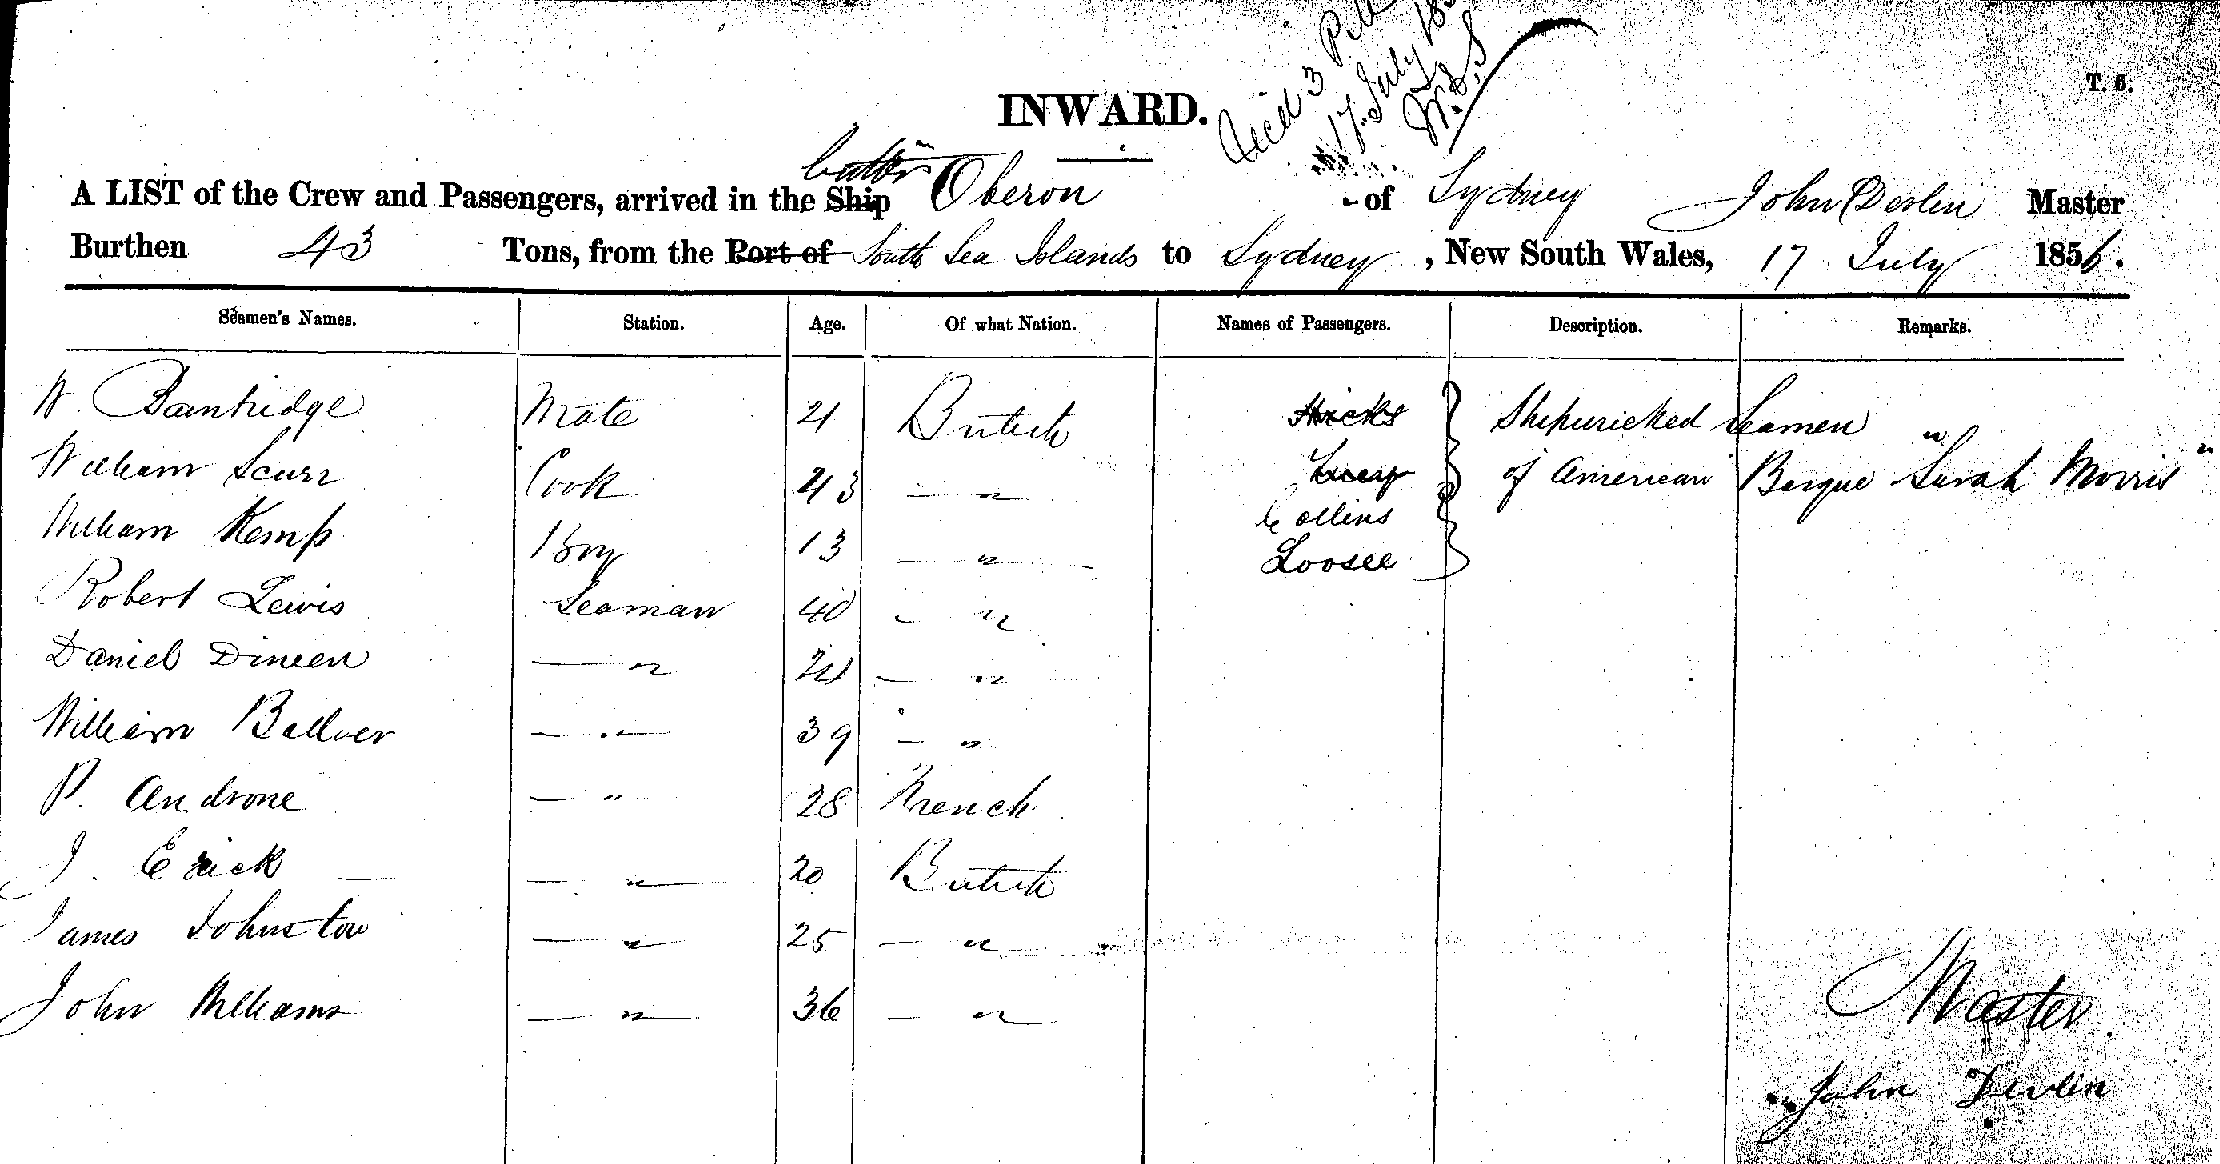 Recd 3 PM
17 July 185
W.L.S
T. 6.
INWARD.
A LIST of the Crew and Passengers, arrived in the Ship Cutter Oberon of Sydney John Devlin Master
Burthen 43 Tons, from the Port of South Sea Islands to Sydney, New South Wales, 17 July 1856.
Seamen's Names. Station. Age. Of what Nation. Names of Passengers. Description. Remarks.
W. Bambridge Mate 21 British Hicks Shipwricked Seamen
William Scurr Cook 23 — " Lucas of American Barque "Sarah Morris"
William Kemp Boy 13 — " Collins
Robert Lewis Seaman 40 — " Loosee
Daniel Dineen — " 24 — "
William Ballver — " 39 — "
P. Androne — " 28 French
J. Erick — " 20 British
James Johnston — " 25 — "
John Williams — " 36 — "
Master
John Devlin